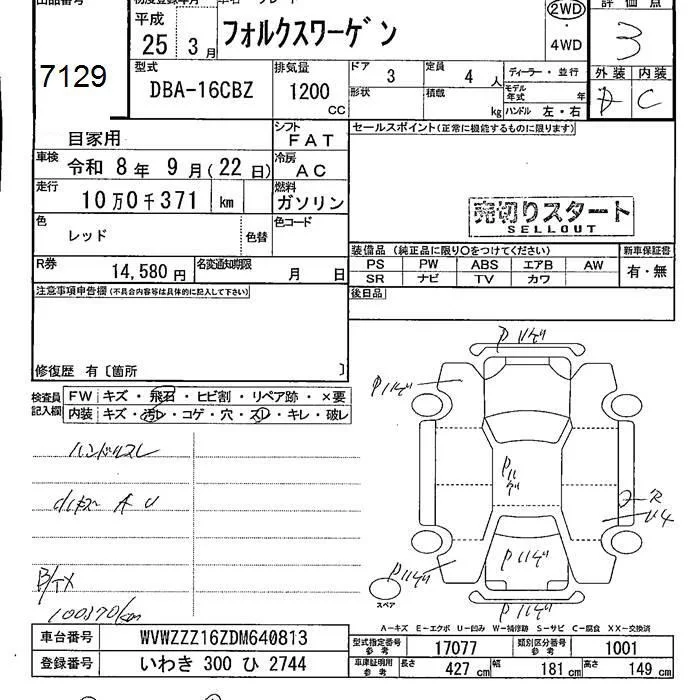 7129
平成 25 3月
フォルクスワーゲン
2WD
・
4WD
3
型式
DBA-16CBZ
排気量
1200 CC
ドア 3
定員 4人
形状
積載 kg
ディーラー・並行
モデル年式 年
ハンドル 左・右
外装 内装
C
自家用
シフト
FAT
セールスポイント(正常に機能するものに限ります)
車検 令和 8年 9月(22日)
冷房
AC
走行 10万0千371 km
燃料
ガソリン
売切りスタート
SELLOUT
色 レッド
色替
色コード
装備品 (純正品に限り〇をつけてください)
新車保証書
PS PW ABS エアB AW
有・無
SR ナビ TV カワ
R券 14,580円
名変通知期限 月 日
後日品
注意事項申告欄(不具合内容等は具体的に記入して下さい)
修復歴 有〔箇所 〕
検査員記入欄
FW キズ・飛石・ヒビ割・リペア跡・×要
内装 キズ・汚レ・コゲ・穴・スレ・キレ・破レ
ハンドルスレ
AU
B/TX
100370/km
Pハゲ
Pハゲ
Pハゲ
Pハゲ
Pハゲ
スペア
A－キズ E－エクボ U－凹み W－補修跡 S－サビ C－腐食 XX－交換済
車台番号 WVWZZZ16ZDM640813
型式指定番号 参考 17077
類別区分番号 参考 1001
登録番号 いわき 300 ひ 2744
車庫証明用 参考 長さ 427cm 幅 181cm 高さ 149cm